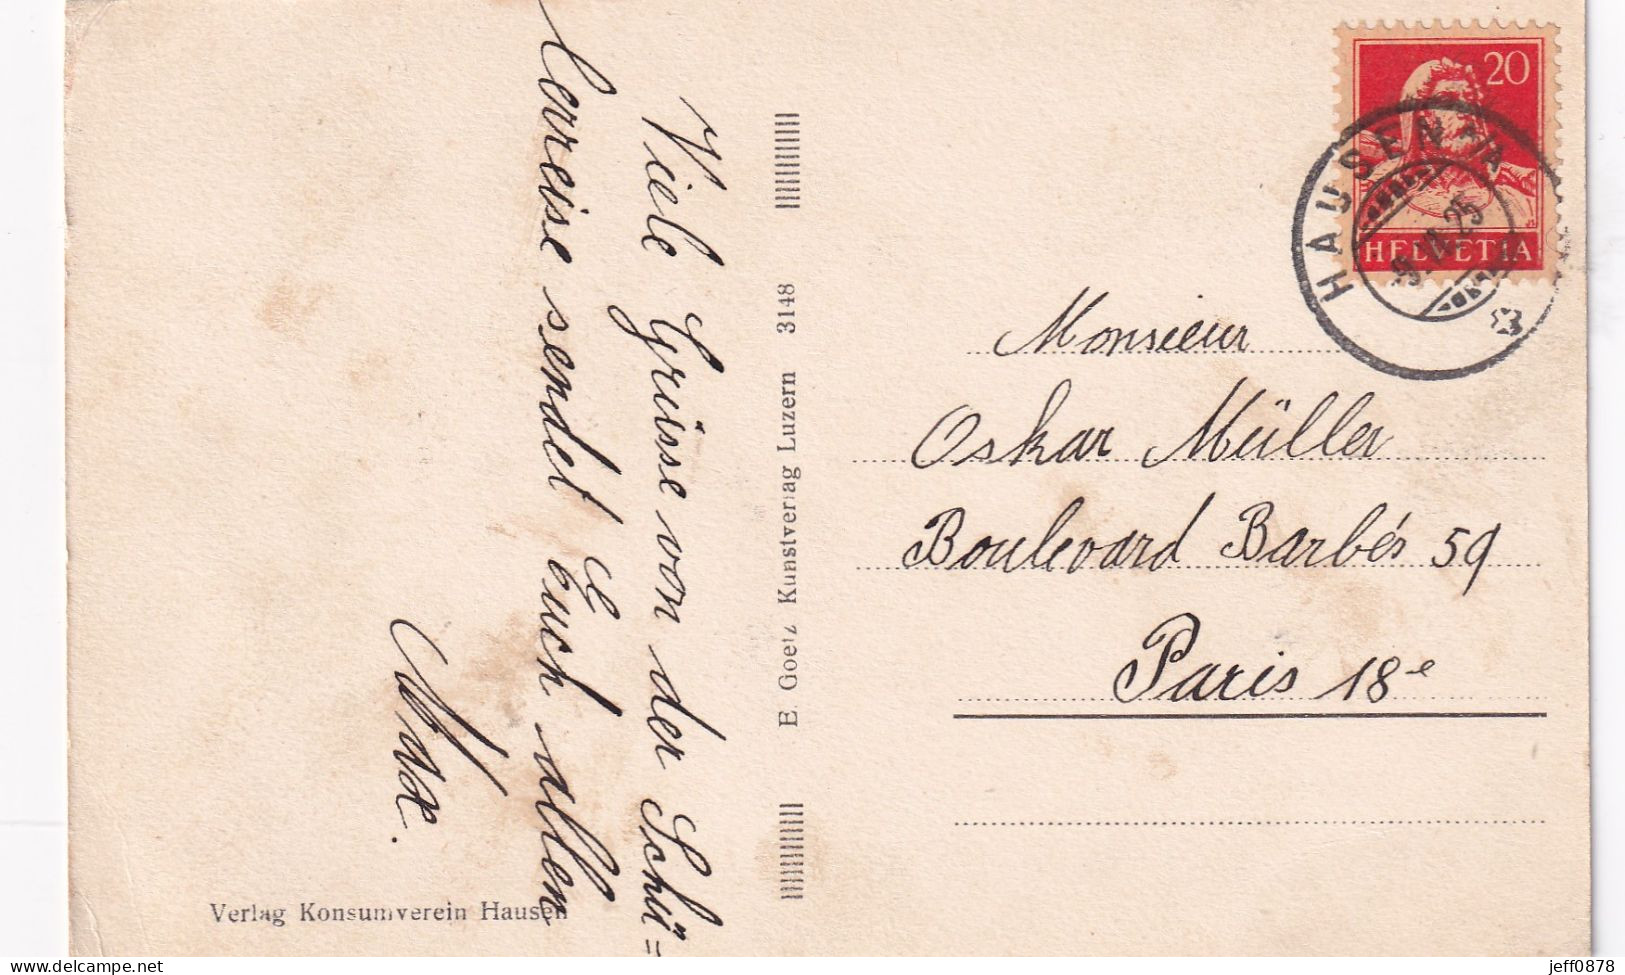 Viele Grüsse von der Schü=
lerreise sendet Euch allen
Max.
E. Goetz Kunstverlag Luzern 3148
Verlag Konsumverein Hausen
20
HELVETIA
HAUSEN A/A
Monsieur
Oskar Müller
Boulevard Barbés 59
Paris 18e
jeff0878